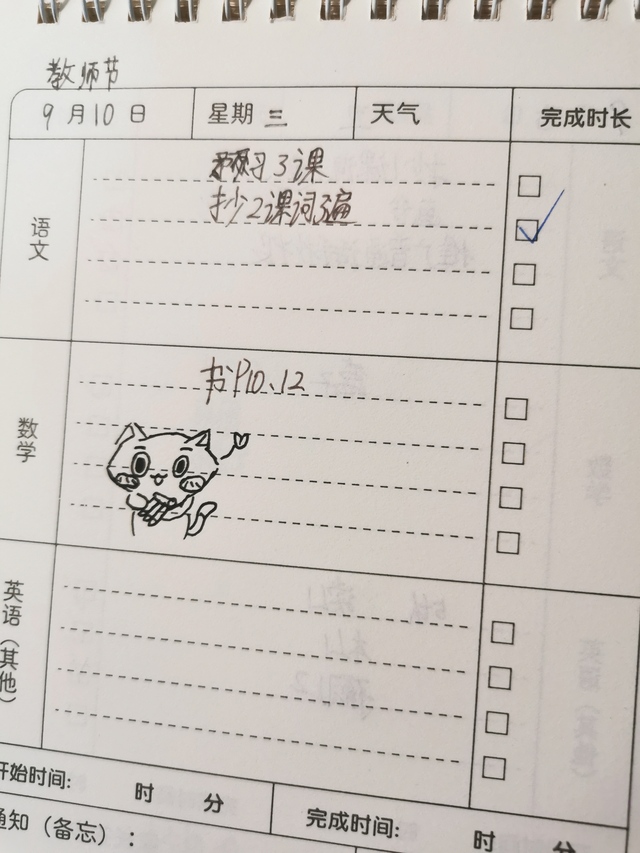 教师节
9月10日 星期三 天气 完成时长
语文
预习3课
抄2课词3遍
数学
书P10、12
英语（其他）
开始时间： 时 分 完成时间： 时 分
通知（备忘）：